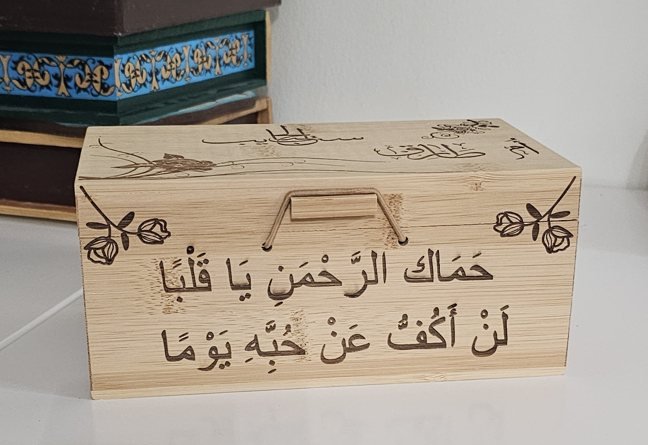 حَمَاكَ الرَّحْمَنِ يَا قَلْبًا
لَنْ أَكُفُّ عَنْ حُبَّهِ يَوْمًا